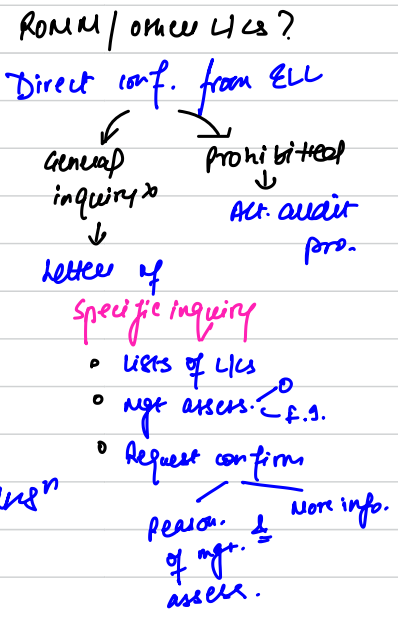 ROMM / other L/Cs?
Direct conf. from ELL
General inquiry x
Prohibitted
Alt. audit pro.
Letter of
specific inquiry
Lists of L/Cs
mgt assess. O
F.I.
Request confirm
Reason. & More info.
of mgt.
assess.